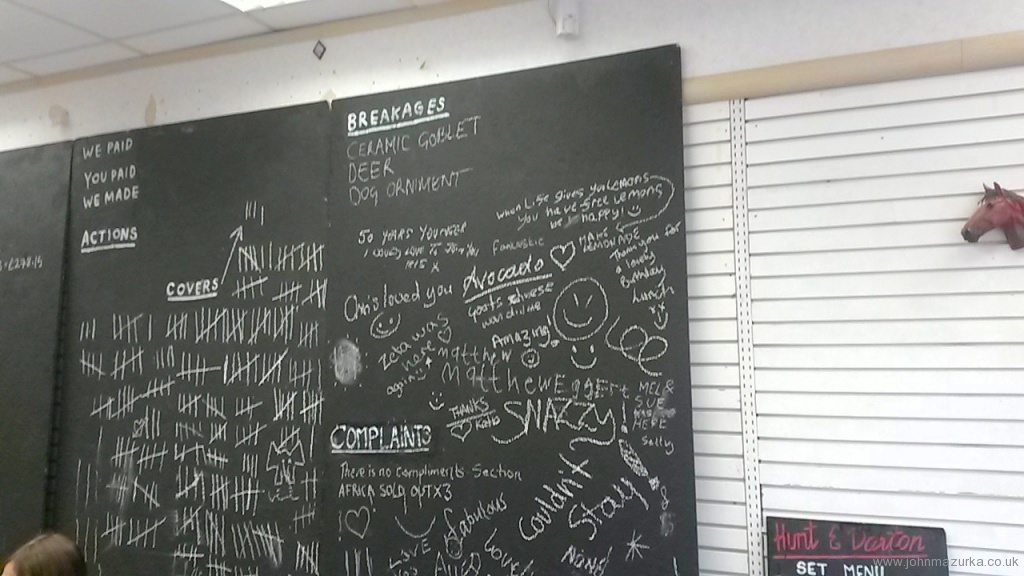 WE PAID
YOU PAID
WE MADE
ACTIONS
COVERS
BREAKAGES
CERAMIC GOBLET
DEER
DOG ORNIMENT
When Life gives you Lemons
You have free Lemons
be happy!
MAKE
LEMONADE
50 YEARS YOUNGER
Fantastic
Thank you for
a lovely
Birthday
Lunch
Avocado
Goats cheese
Chris loved you
Amazing!
Zeta was
here
again
matthew
Matthew Eggert
MEL &
SUE
HERE
Sally
THANKS
SNAZZY!
COMPLAINTS
There is no Compliments Section
AFRICA SOLD OUT X3
Couldn't
Stay!
Fabulous
LOVE
Love
Hunt & Darton
SET MENU
www.johnmazurka.co.uk